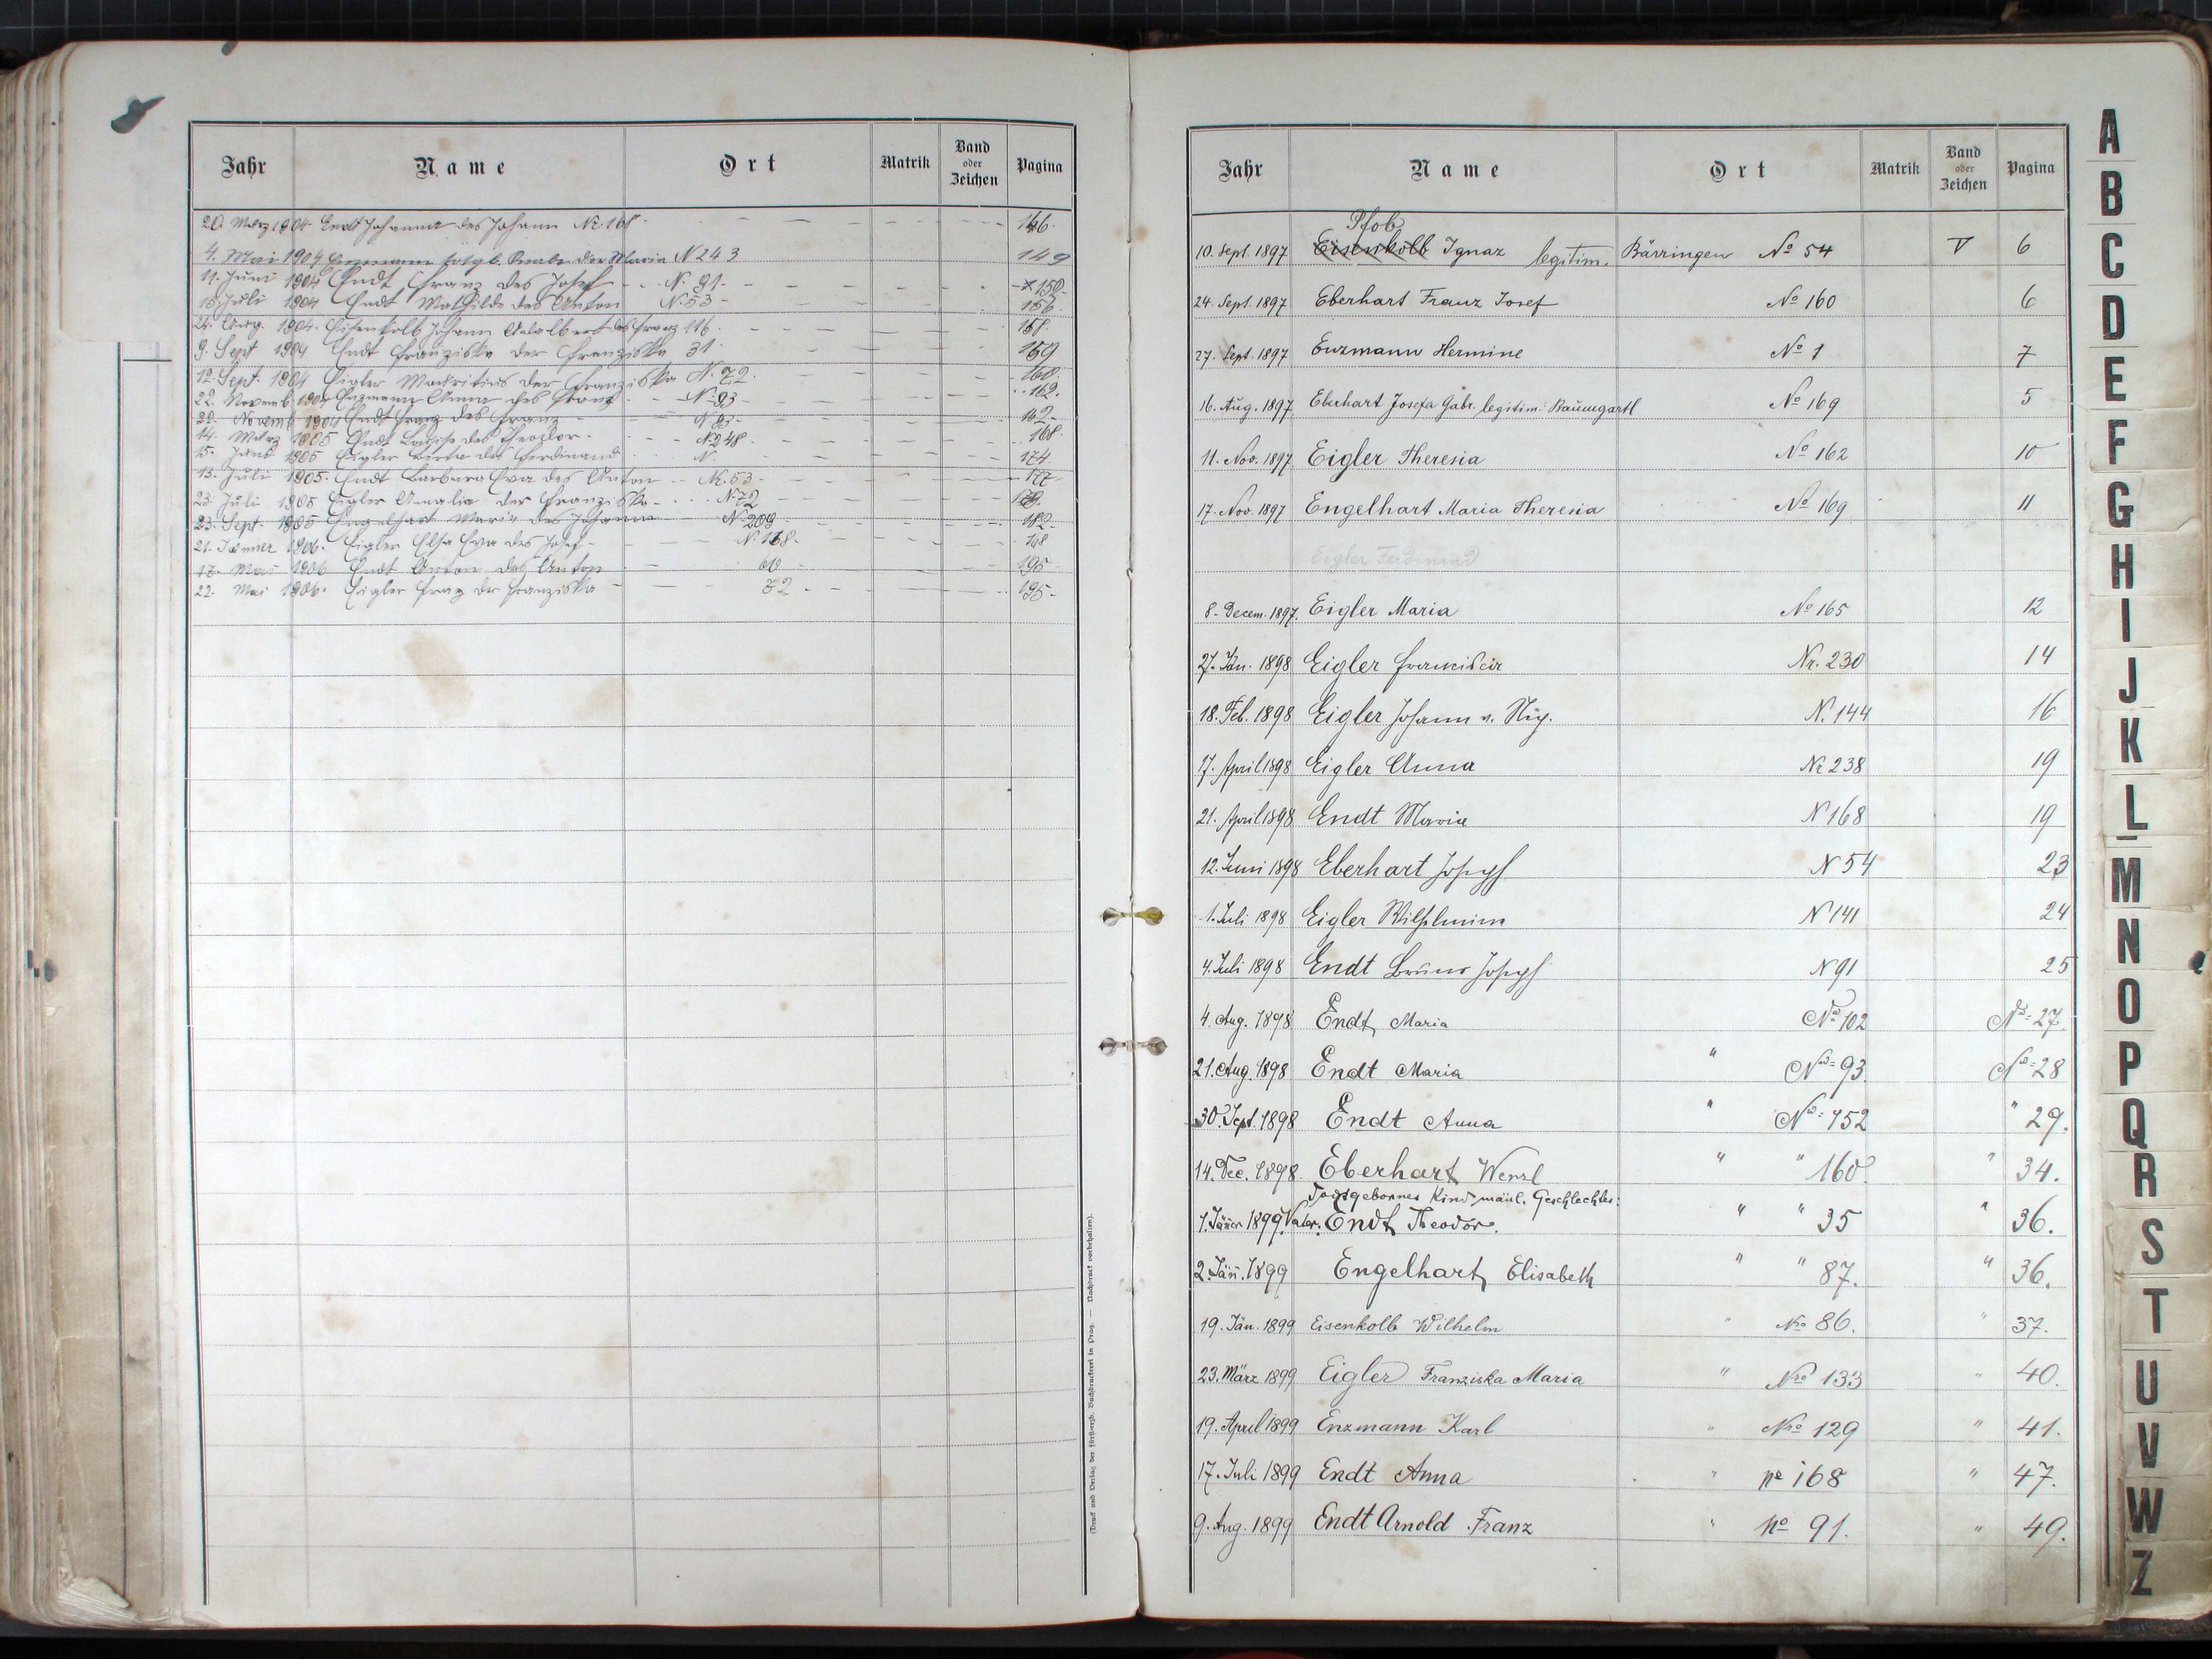 Jahr Name Ort Matrik Band oder Zeichen Pagina
20. März 1904. Endt Johanna des Johann Nr 168. 146.
4. Mai 1904 Enzmann totgb. Knabe der Maria N 243 149
11. Juni 1904 Endt Franz des Josef N. 91 150.
Juli 1904 Endt Mathilde des Anton N. 53 156.
24. Aug. 1904. Eisenkolb Johann Adalbert des Franz 116. 158.
9. Sept 1904 Endt Franziska der Franziska 31. 159
12. Sept. 1904 Eigler Mauritius der Franziska N. 72. 160.
22. Novemb. 1904 Enzmann Anna des Franz N. 93 162.
22. Novemb 1904 Endt Franz des Franz 162.
14. März 1905 Endt Louise des Theodor. N 248. 168.
15. Juni 1905 Eigler des Ferdinand N. 174.
13. Juli 1905. Endt Barbara Eva des Anton Nr. 53 177.
23. Juli 1905 Eigler Amalia der Franziska N. 72
23. Sept. 1905 Engelhart Maria des Johann N. 209 182.
21. Jänner 1906. Eigler Elsa Eva des Josef N. 168.
17. Mai 1906 Endt Anton des Anton 60 195
22. Mai 1906. Eigler Franz der Franziska 72. 195.
(Druck und Verlag der fürsterzb. Buchdruckerei in Prag. — Nachdruck vorbehalten).
Jahr Name Ort Matrik Band oder Zeichen Pagina
Pfob
10. Sept. 1897 Eisenkolb Ignaz legitim. Bärringen No 54 V 6
24. Sept. 1897 Eberhart Franz Josef No 160 6
27. Sept. 1897 Enzmann Hermine No 1 7
16. Aug. 1897 Eberhart Josefa Gabr. legitim: Baumgartl No 169 5
11. Nov. 1897 Eigler Theresia No 162 10
17. Nov. 1897 Engelhart Maria Theresia No 169 11
Eigler Ferdinand
8. Decem. 1897. Eigler Maria No 165 12
27. Jän. 1898 Eigler Francisca Nr. 230 14
18. Feb. 1898 Eigler Johann N. 144 16
17. April 1898 Eigler Anna Nr 238 19
21. April 1898 Endt Maria N 168 19
12. Juni 1898 Eberhart Joseph N 54 23
1. Juli 1898 Eigler Wilhelmine N 141 24
4. Juli 1898 Endt Bruno Joseph N 91 25
4. Aug. 1898 Endt, Maria No 102 No = 27.
21. Aug. 1898 Endt Maria " No = 93. No = 28
30. Sept. 1898 Endt Anna " No = 152 " 29.
14. Dec. 1898. Eberhart Wenzl " " 160. " 34.
Todtgebornes Kind mänl. Geschlechtes:
1. Jäner 1899. Vater. Endt Theodor. " " 35 " 36.
2. Jän. 1899 Engelhart, Elisabeth " " 87. " 36.
19. Jän. 1899 Eisenkolb Wilhelm " Nro 86. " 37.
23. März 1899 Eigler Franziska Maria " Nro 133 " 40.
19. April 1899 Enzmann Karl " Nro 129 " 41.
17. Juli 1899 Endt Anna " No 168 " 47.
9. Aug. 1899 Endt Arnold Franz " No 91. " 49.
A
B
C
D
E
F
G
H
I
J
K
L
M
N
O
P
Q
R
S
T
U
V
W
Z